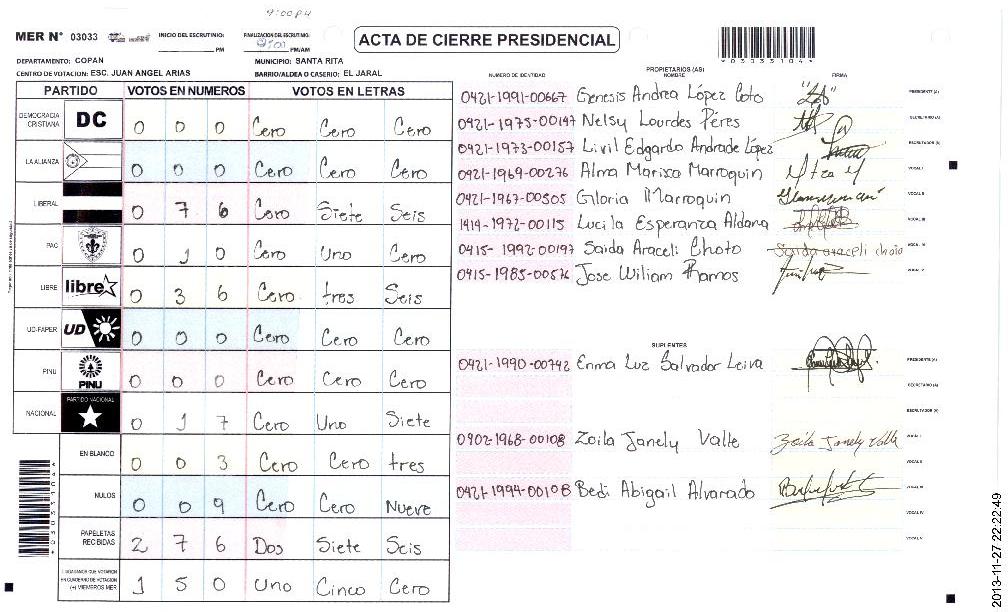 9:00 PM
MER N° 03033 INICIO DEL ESCRUTINIO: PM FINALIZACION DEL ESCRUTINIO: 9:00 PM/AM
ACTA DE CIERRE PRESIDENCIAL
DEPARTAMENTO: COPAN MUNICIPIO: SANTA RITA
CENTRO DE VOTACION: ESC. JUAN ANGEL ARIAS BARRIO/ALDEA O CASERIO: EL JARAL
PARTIDO VOTOS EN NUMEROS VOTOS EN LETRAS
DEMOCRACIA CRISTIANA DC 0 0 0 Cero Cero Cero
LA ALIANZA 0 0 0 Cero Cero Cero
LIBERAL 0 7 6 Cero Siete Seis
PAC 0 1 0 Cero Uno Cero
LIBRE libre 0 3 6 Cero tres Seis
UD-FAPER UD 0 0 0 Cero Cero Cero
PINU PINU 0 0 0 Cero Cero Cero
NACIONAL PARTIDO NACIONAL 0 1 7 Cero Uno Siete
EN BLANCO 0 0 3 Cero Cero tres
NULOS 0 0 9 Cero Cero Nueve
PAPELETAS RECIBIDAS 2 7 6 Dos Siete Seis
CIUDADANOS QUE VOTARON EN CUADERNO DE VOTACION (+) MIEMBROS MER 1 5 0 Uno Cinco Cero
NUMERO DE IDENTIDAD PROPIETARIOS (AS) NOMBRE FIRMA
0421-1991-00667 Genesis Andrea López Coto PRESIDENTE (A)
0421-1975-00147 Nelsy Lourdes Péres SECRETARIO (A)
0421-1973-00157 Livil Edgardo Andrade López ESCRUTADOR (A)
0421-1969-00276 Alma Marisa Marroquin VOCAL I
0421-1967-00305 Gloria Marroquin VOCAL II
1414-1972-00115 Lucila Esperanza Aldana VOCAL III
0415-1992-00197 Saida Araceli Choto Saida araceli choto VOCAL IV
0415-1985-00576 Jose Wiliam Ramos VOCAL V
SUPLENTES
0421-1990-00742 Enma Luz Salvador Leiva PRESIDENTE (A)
SECRETARIO (A)
ESCRUTADOR (A)
0902-1968-00108 Zoila Janely Valle Zoila Janely Valle VOCAL I
VOCAL II
0421-1994-00108 Bedi Abigail Alvarado VOCAL III
VOCAL IV
VOCAL V
2013-11-27 22:22:49